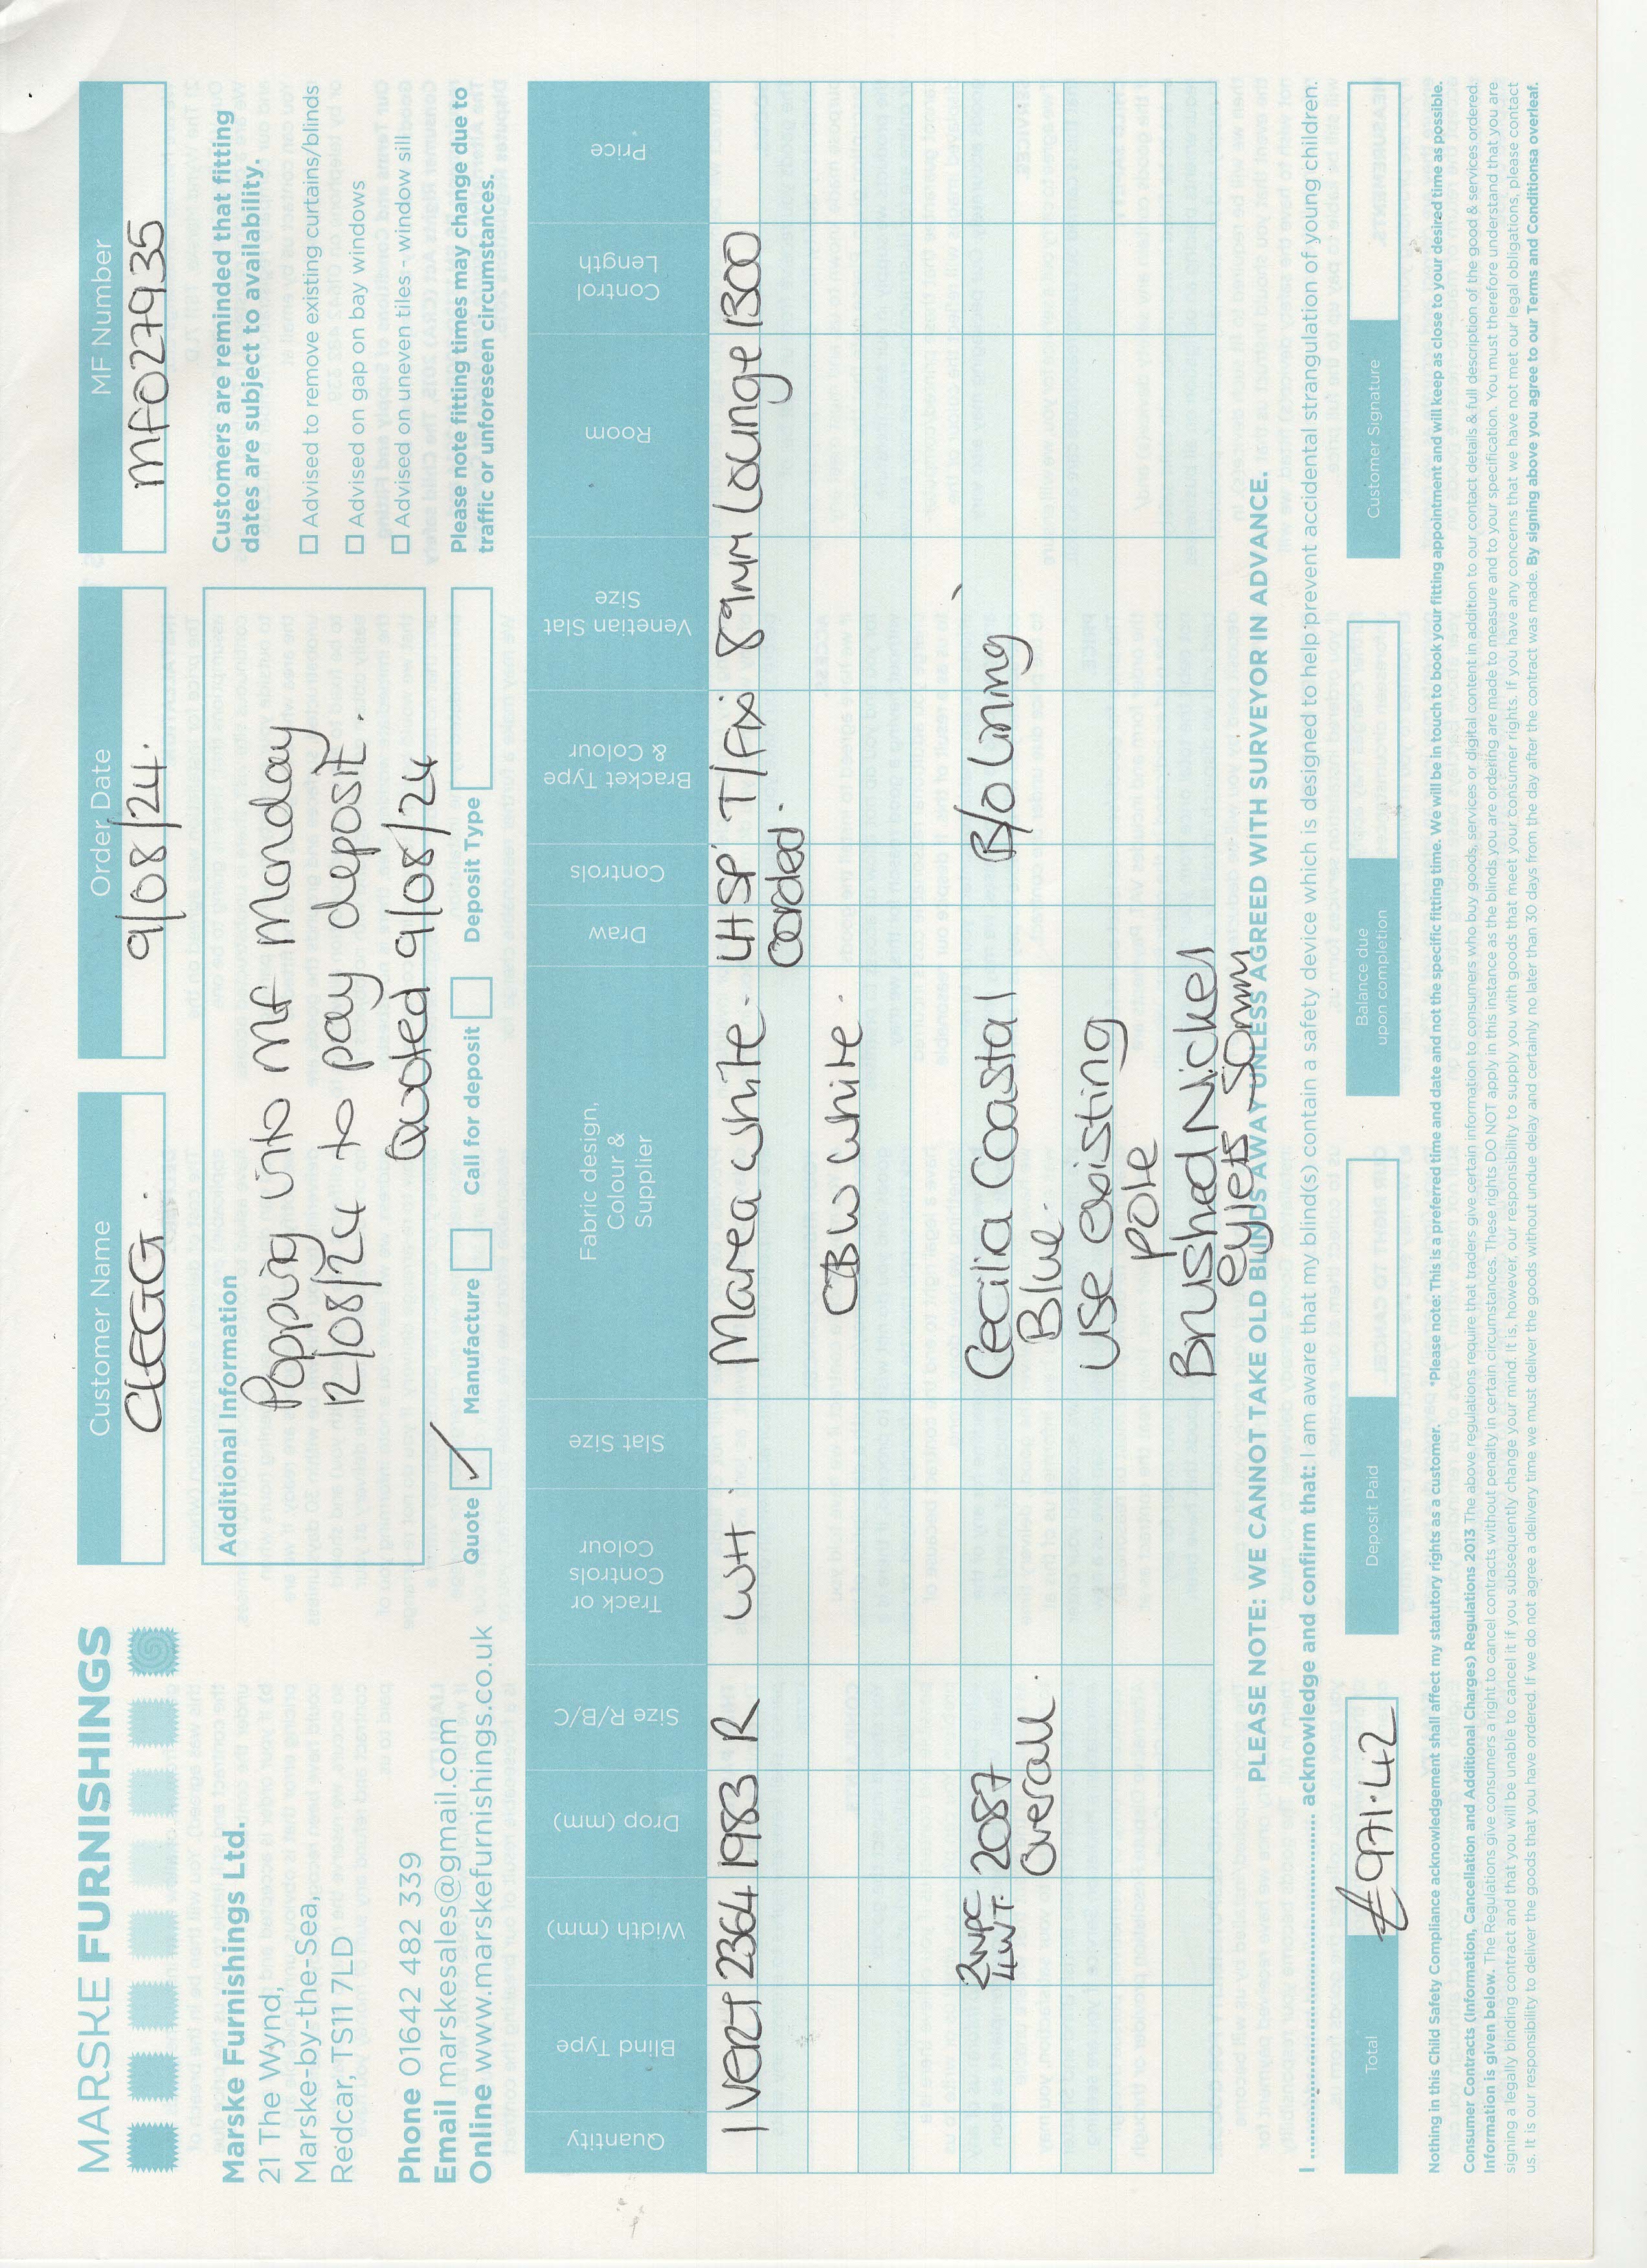 MARSKE FURNISHINGS
Marske Furnishings Ltd.
21 The Wynd,
Marske-by-the-Sea,
Redcar, TS11 7LD
Phone 01642 482 339
Email marskesales@gmail.com
Online www.marskefurnishings.co.uk
Customer Name
CLEGG.
Order Date
9/08/24.
MF Number
MF027935
Additional Information
Popping into MF Monday
12/08/24 to pay deposit.
Quoted 9/08/24
Quote ✓ Manufacture Call for deposit Deposit Type
Customers are reminded that fitting
dates are subject to availability.
Advised to remove existing curtains/blinds
Advised on gap on bay windows
Advised on uneven tiles - window sill
Please note fitting times may change due to
traffic or unforeseen circumstances.
Quantity
Blind Type
Width (mm)
Drop (mm)
Size R/B/C
Track or
Controls
Colour
Slat Size
Fabric design,
Colour &
Supplier
Draw
Controls
Bracket Type
& Colour
Venetian Slat
Size
Room
Control
Length
Price
1 VERT 2364 1983 R WH. Marea White. LHSP T/Fix 89mm Lounge 1300
Corded.
CBW White.
2NPC 2087 Cecilia Coastal B/O Lining
4WT. Overall. Blue.
Use existing
pole
Brushed Nickel
eyjets 50mm
PLEASE NOTE: WE CANNOT TAKE OLD BLINDS AWAY UNLESS AGREED WITH SURVEYOR IN ADVANCE.
I ........................ acknowledge and confirm that: I am aware that my blind(s) contain a safety device which is designed to help prevent accidental strangulation of young children.
Total
£971.42
Deposit Paid
Balance due
upon completion
Customer Signature
Nothing in this Child Safety Compliance acknowledgement shall affect my statutory rights as a customer. *Please note: This is a preferred time and date and not the specific fitting time. We will be in touch to book your fitting appointment and will keep as close to your desired time as possible.
Consumer Contracts (Information, Cancellation and Additional Charges) Regulations 2013 The above regulations require that traders give certain information to consumers who buy goods, services or digital content in addition to our contact details & full description of the good & services ordered.
Information is given below. The Regulations give consumers a right to cancel contracts without penalty in certain circumstances. These rights DO NOT apply in this instance as the blinds you are ordering are made to measure and to your specification. You must therefore understand that you are
signing a legally binding contract and that you will be unable to cancel it if you subsequently change your mind. It is, however, our responsibility to supply you with goods that meet your consumer rights. If you have any concerns that we have not met our legal obligations, please contact
us. It is our responsibility to deliver the goods that you have ordered. If we do not agree a delivery time we must deliver the goods without undue delay and certainly no later than 30 days from the day after the contract was made. By signing above you agree to our Terms and Conditionsa overleaf.